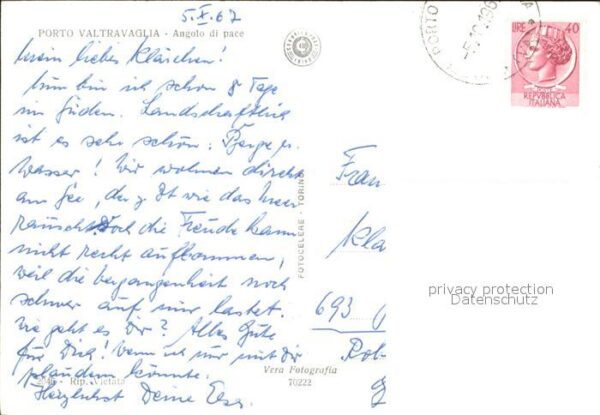 5.X.67
PORTO VALTRAVAGLIA - Angolo di pace
Mein liebes Klärchen!
Nun bin ich schon 8 Tage
im Süden. Landschaftlich
ist es sehr schön: Berge u.
Wasser! Wir wohnen direkt
am See, der z. Zt wie das Meer
rauscht. Doch die Freude kann
nicht recht aufkommen,
weil die Vergangenheit noch
schwer auf mir lastet.
Wie geht es Dir? Alles Gute
für Dich! Wenn ich nur mit Dir
plaudern könnte.
Herzlichst Deine Elsa.
Rip. Vietata
FOTOCELERE - TORINO
Vera Fotografia
70222
PORTO
LIRE 40
REPVBBLICA
ITALIANA
Frau
Kla
693
Rob
privacy protection
Datenschutz